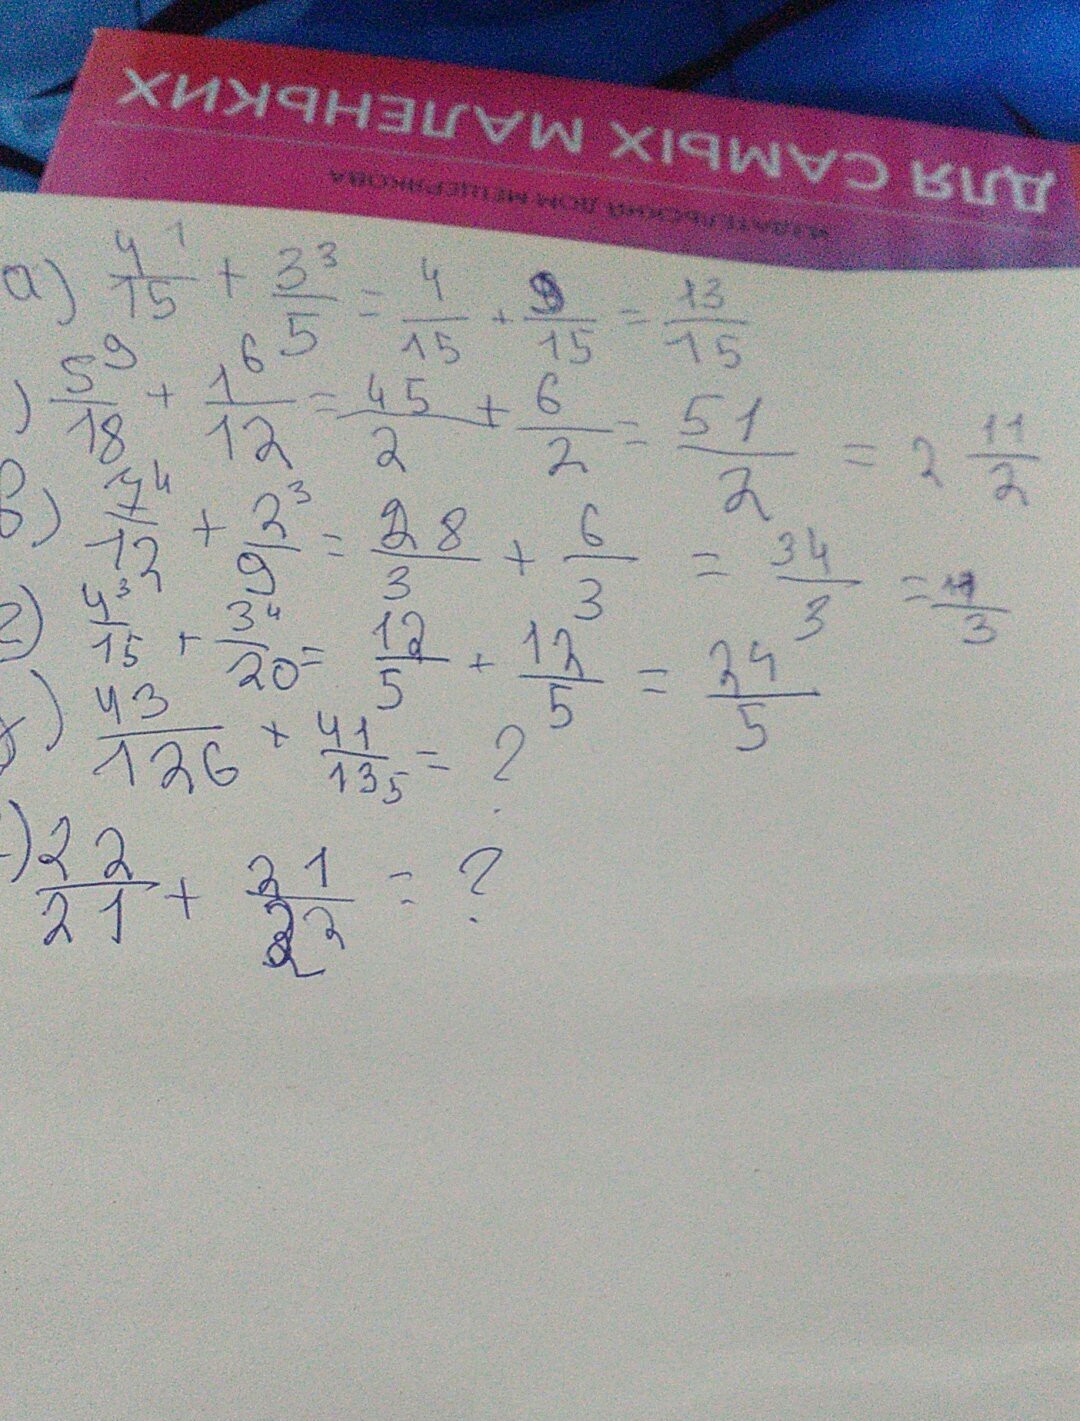 ДЛЯ САМЫХ МАЛЕНЬКИХ
ИЗДАТЕЛЬСКИЙ ДОМ МЕЩЕРЯКОВА
а) 4¹/15 + 3³/5 = 4/15 + 9/15 = 13/15
) 5⁹/18 + 1⁶/12 = 45/2 + 6/2 = 51/2 = 2 11/2
в) 7⁴/12 + 2³/9 = 28/3 + 6/3 = 34/3 = /3
г) 4³/15 + 3⁴/20 = 12/5 + 12/5 = 24/5
) 43/126 + 41/135 = ?
) 22/21 + 21/22 = ?